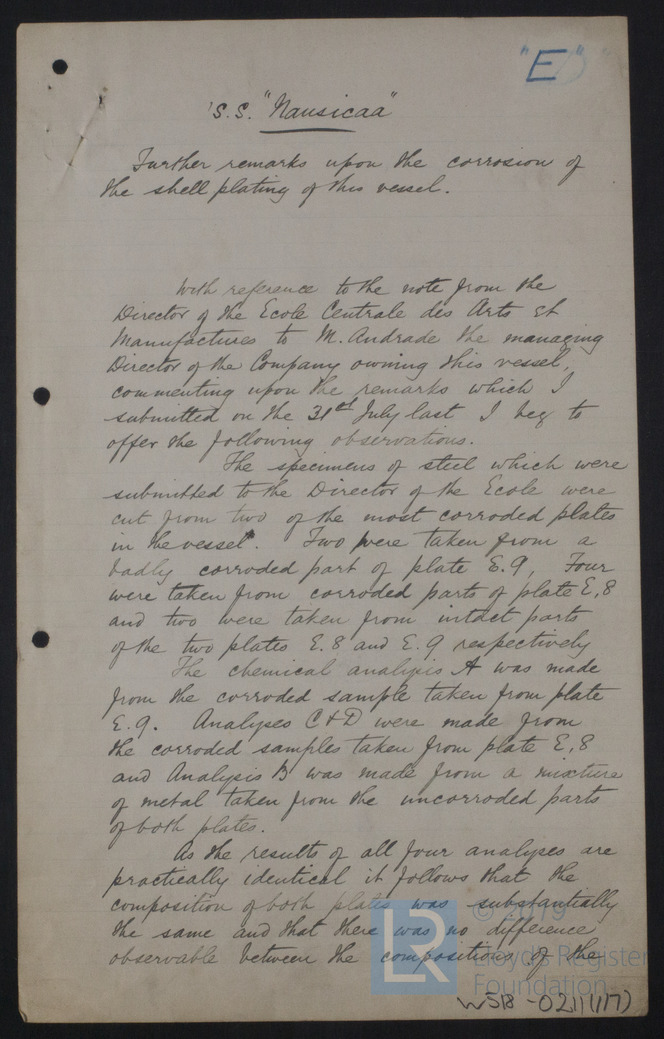 "E"
S.S. "Nausicaa"
Further remarks upon the corrosion of
the shell plating of this vessel.
With reference to the note from the
Director of the Ecole Centrale des Arts et
Manufactures to M. Andrade the managing
Director of the Company owning this vessel,
commenting upon the remarks which I
submitted on the 31st July last I beg to
offer the following observations.
The specimens of steel which were
submitted to the Director of the Ecole were
cut from two of the most corroded plates
in the vessel. Two were taken from a
badly corroded part of plate E.9, Four
were taken from corroded parts of plate E.8
and two were taken from intact parts
of the two plates E.8 and E.9 respectively
The chemical analysis A was made
from the corroded sample taken from plate
E.9. Analyses C & D were made from
the corroded samples taken from plate E.8
and Analysis B was made from a mixture
of metal taken from the uncorroded parts
of both plates.
As the results of all four analyses are
practically identical it follows that the
composition of both plates was substantially
the same and that there was no difference
observable between the compositions of the
© 2019
LR
Lloyd's Register
Foundation
W518-0211(1/7)